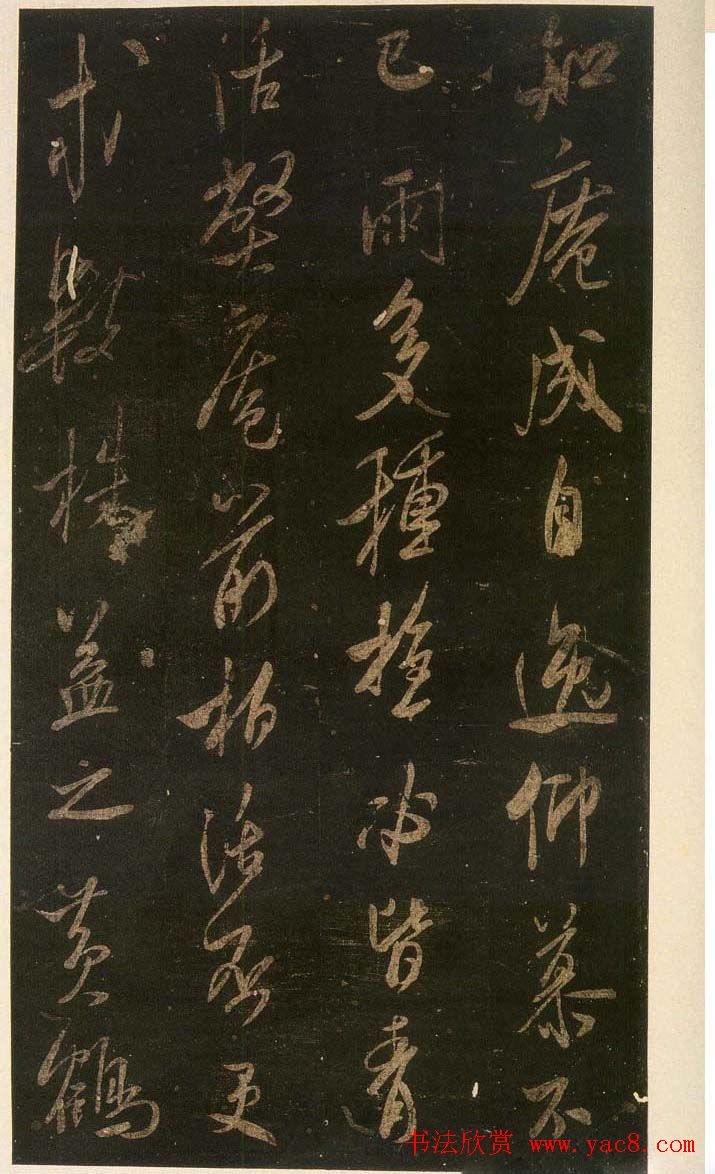 知庵成自逸仰慕不
已雨多種植必皆青
活弊庵前柏活否更
求數益之黄鶴
书法欣赏 www.yac8.com